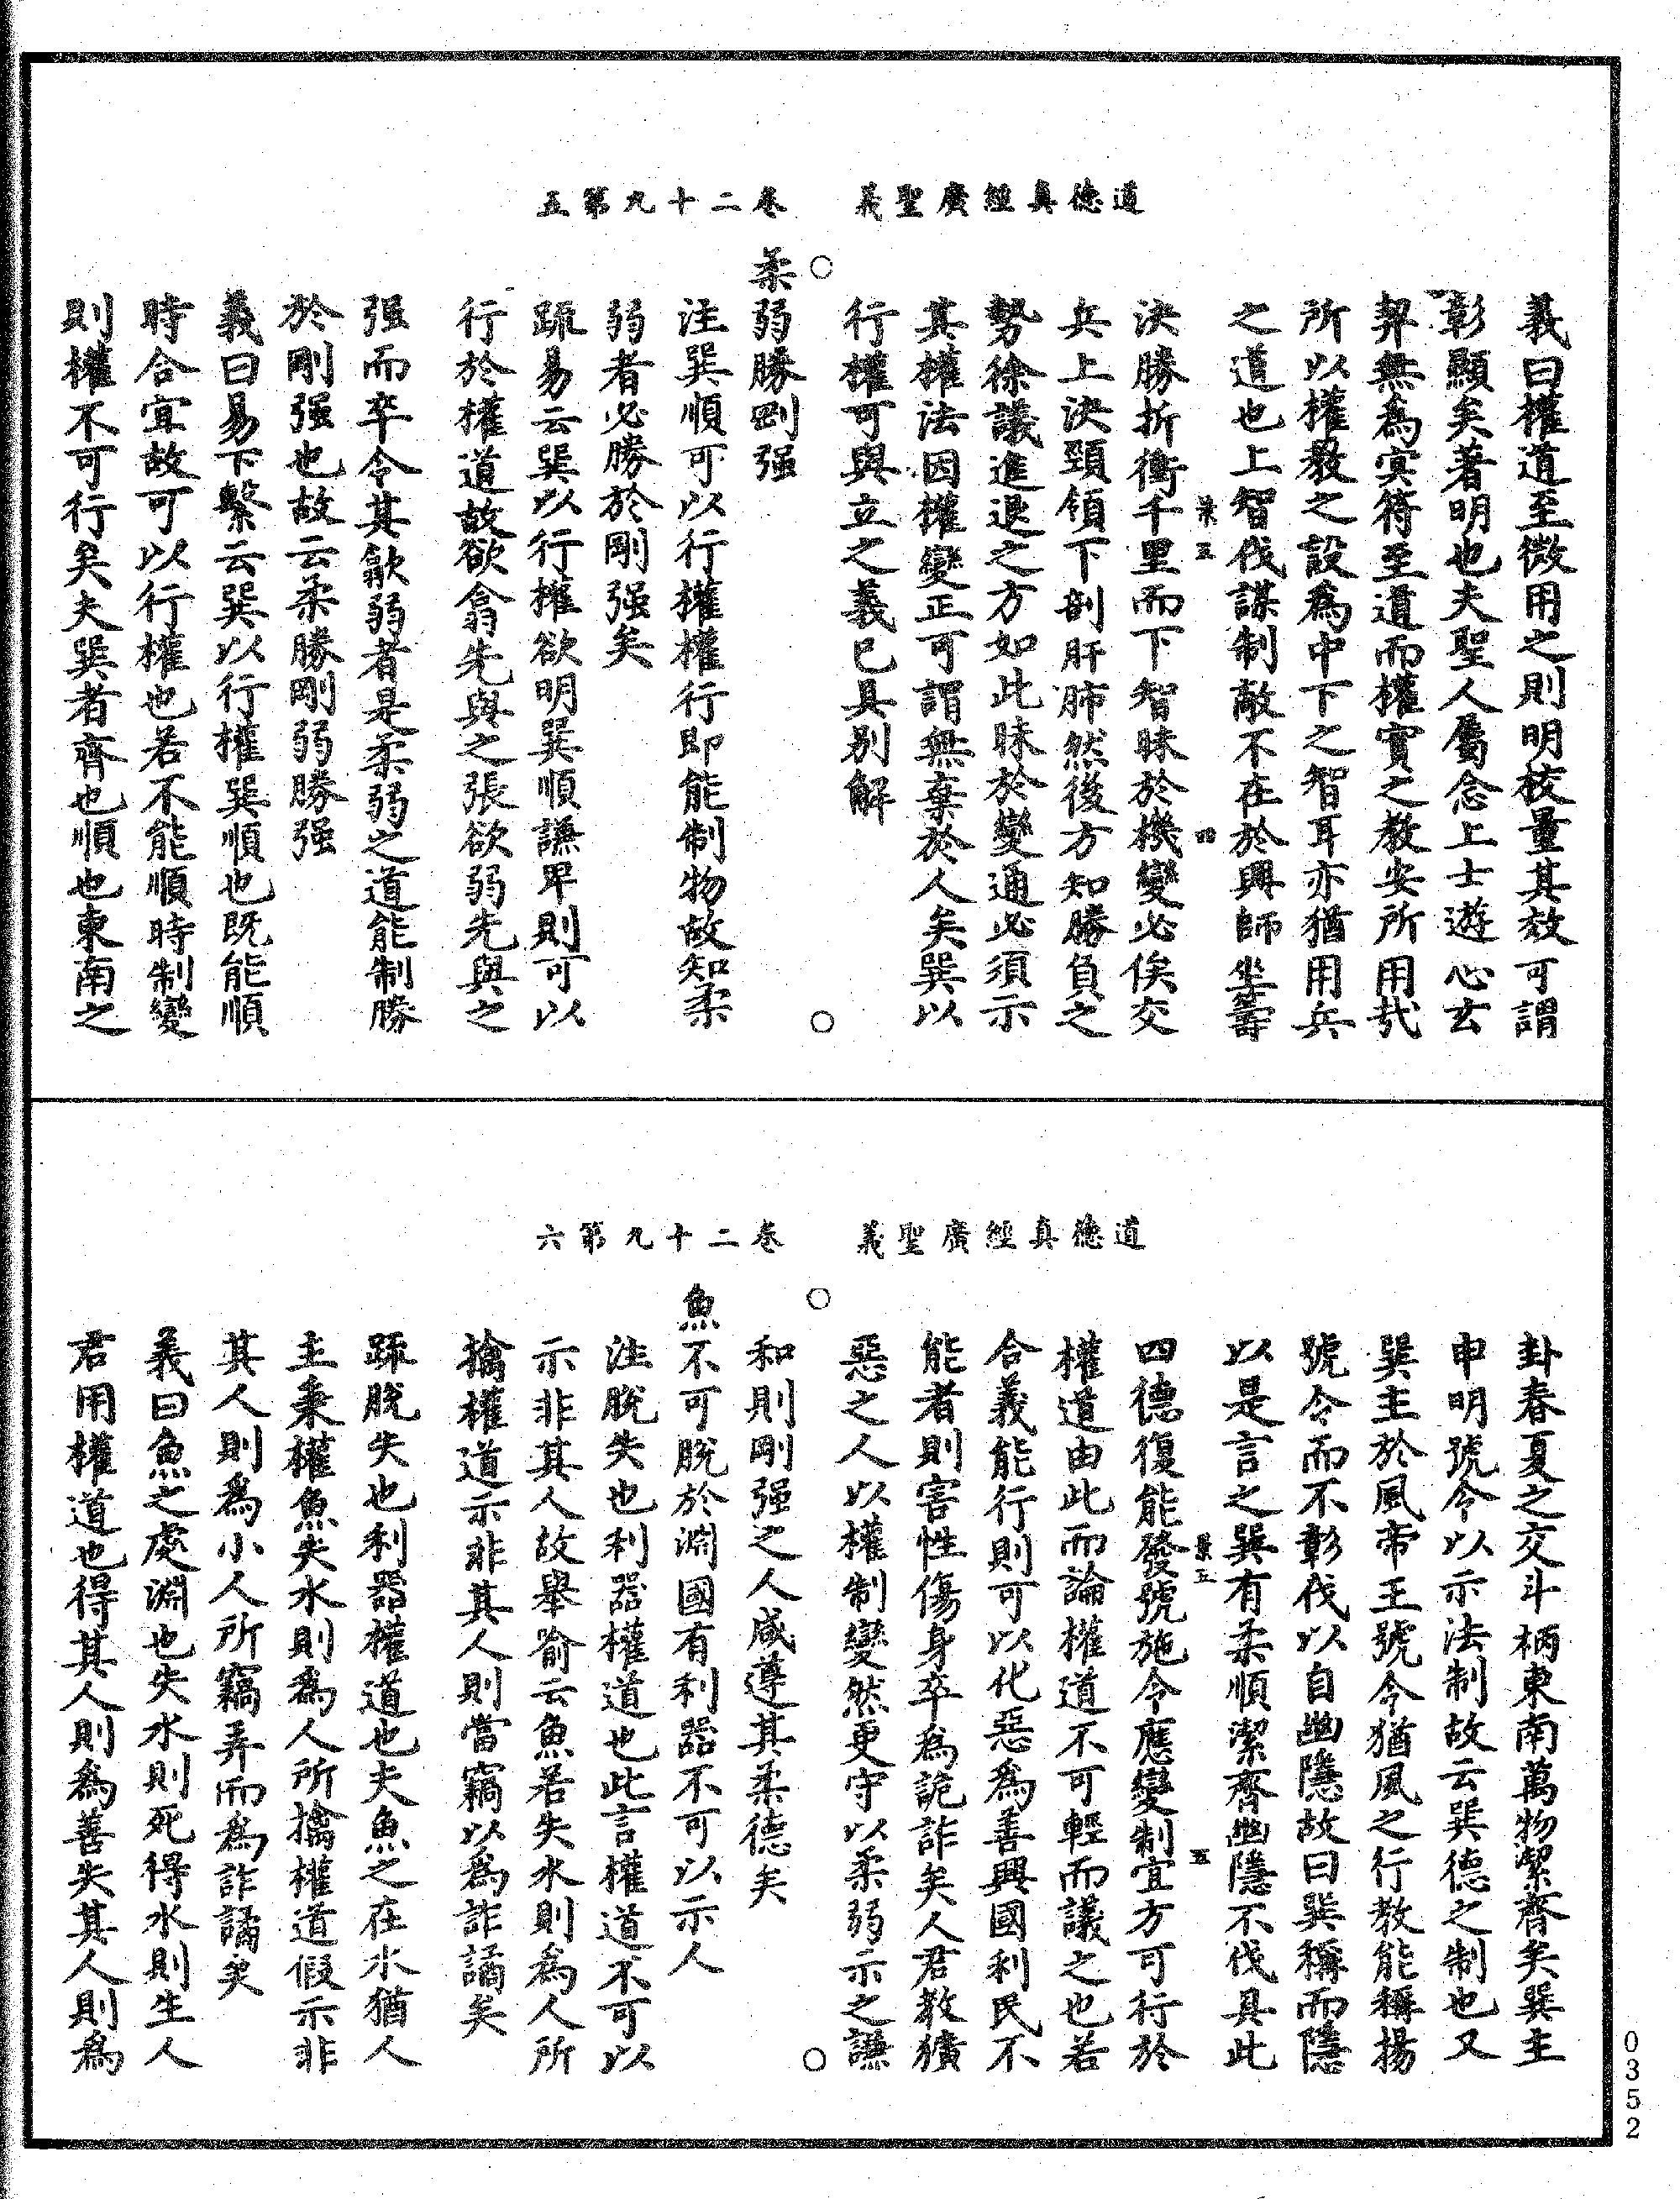 道德真經廣聖義　卷二十九第五
義曰權道至微用之則明校量其效可謂
彰顯矣著明也夫聖人屬念上士遊心玄
契無為㝠符至道而權實之教安所用哉
所以權教之設為中下之智耳亦猶用兵
之道也上智伐謀制敵不在於興師坐籌
決勝折衝千里而下智昧於機變必俟交
兵上決頸領下剖肝肺然後方知勝負之
勢徐議進退之方如此昧於變通必須示
其權法因權變正可謂無棄於人矣巽以
行權可與立之義已具別解
柔弱勝剛强
注巽順可以行權權行即能制物故知柔
弱者必勝於剛强矣
疏易云巽以行權欲明巽順謙卑則可以
行於權道故欲翕先與之張欲弱先與之
强而卒令其歙弱者是柔弱之道能制勝
於剛强也故云柔勝剛弱勝强
義曰易下繫云巽以行權巽順也既能順
時合宜故可以行權也若不能順時制變
則權不可行矣夫巽者齊也順也東南之
道德真經廣聖義　卷二十九第六
卦春夏之交斗柄東南萬物潔齊矣巽主
申明號令以示法制故云巽德之制也又
巽主於風帝王號令猶風之行教能稱揚
號令而不彰伐以自幽隱故曰巽稱而隱
以是言之巽有柔順潔齊幽隱不伐具此
四德復能發號施令應變制宜方可行於
權道由此而論權道不可輕而議之也若
合義能行則可以化惡為善興國利民不
能者則害性傷身卒為詭詐矣人君教獷
惡之人以權制變然更守以柔弱示之謙
和則剛强之人咸遵其柔德矣
魚不可脫於淵國有利器不可以示人
注脫失也利器權道也此言權道不可以
示非其人故舉喻云魚若失水則為人所
擒權道示非其人則當竊以為詐譎矣
疏脫失也利器權道也夫魚之在水猶人
主秉權魚失水則為人所擒權道假示非
其人則為小人所竊弄而為詐譎矣
義曰魚之處淵也失水則死得水則生人
君用權道也得其人則為善失其人則為
0352